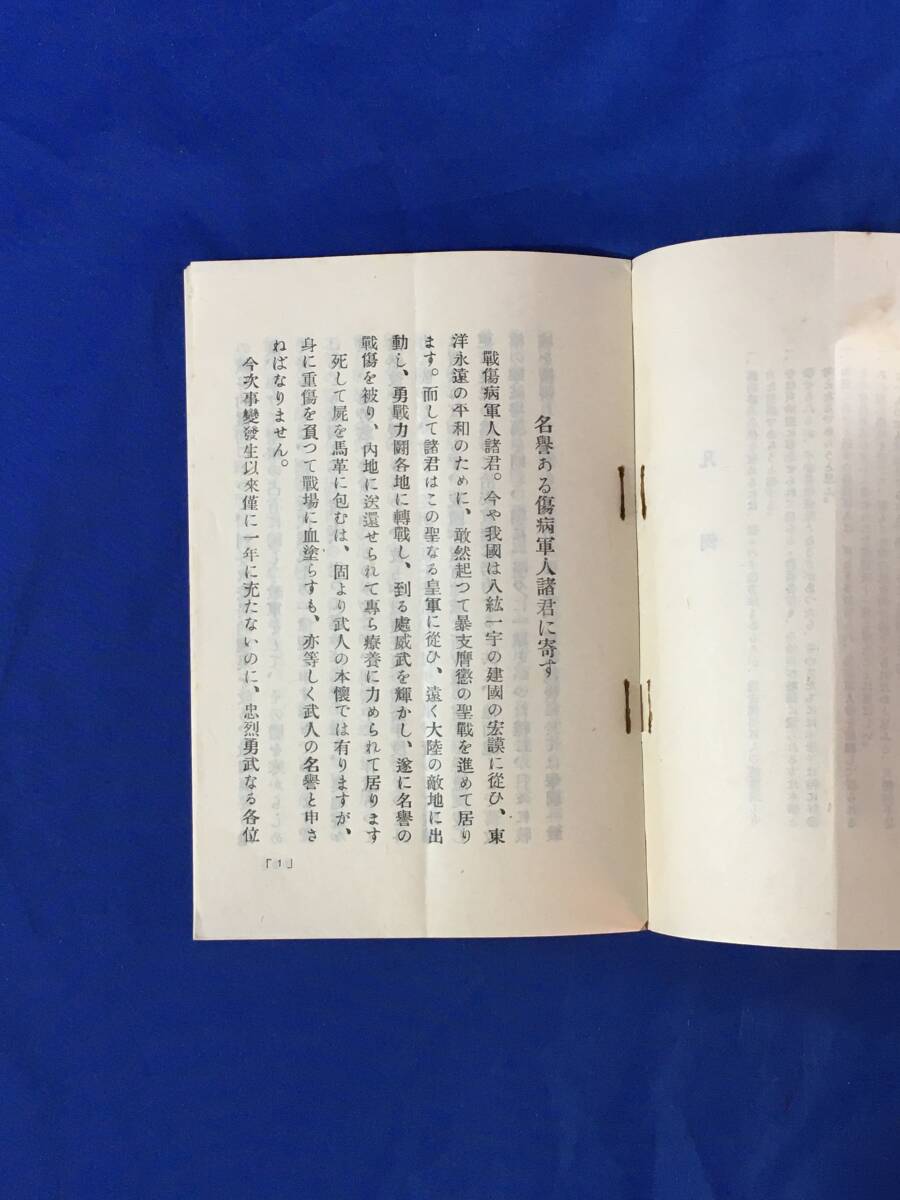 名譽ある傷病軍人諸君に寄す
戰傷病軍人諸君。今や我國は八紘一宇の建國の宏謨に從ひ、東
洋永遠の平和のために、敢然起つて暴支膺懲の聖戰を進めて居り
ます。而して諸君はこの聖なる皇軍に從ひ、遠く大陸の敵地に出
動し、勇戰力鬪各地に轉戰し、到る處威武を輝かし、遂に名譽の
戰傷を被り、內地に送還せられて專ら療養に力められて居ります
死して屍を馬革に包むは、固より武人の本懷では有りますが、
身に重傷を負つて戰場に血塗らすも、亦等しく武人の名譽と申さ
ねばなりません。
今次事變發生以來僅に一年に充たないのに、忠烈勇武なる各位
「1」
凡例